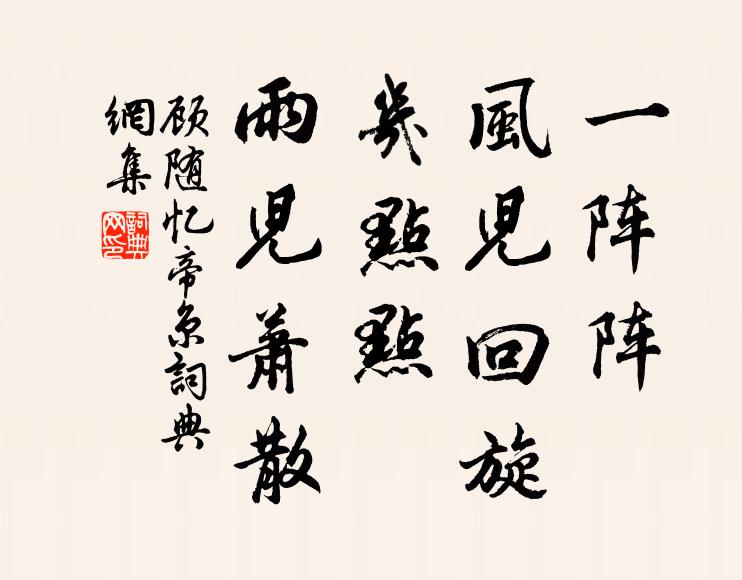 一阵阵
風児回旋
幾點點
雨児蕭散
顾随忆帝京詞典
網集
詞典网印